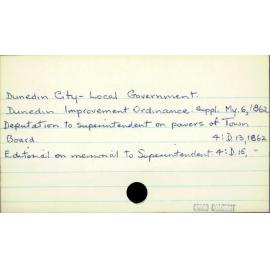 Dunedin City - Local Government.
Dunedin Improvement Ordinance. Suppl. My. 6, 1862
Deputation to superintendent on powers of Town
Board. 4: D. 13, 1862
Editorial on memorial to Superintendent 4: D. 15, "